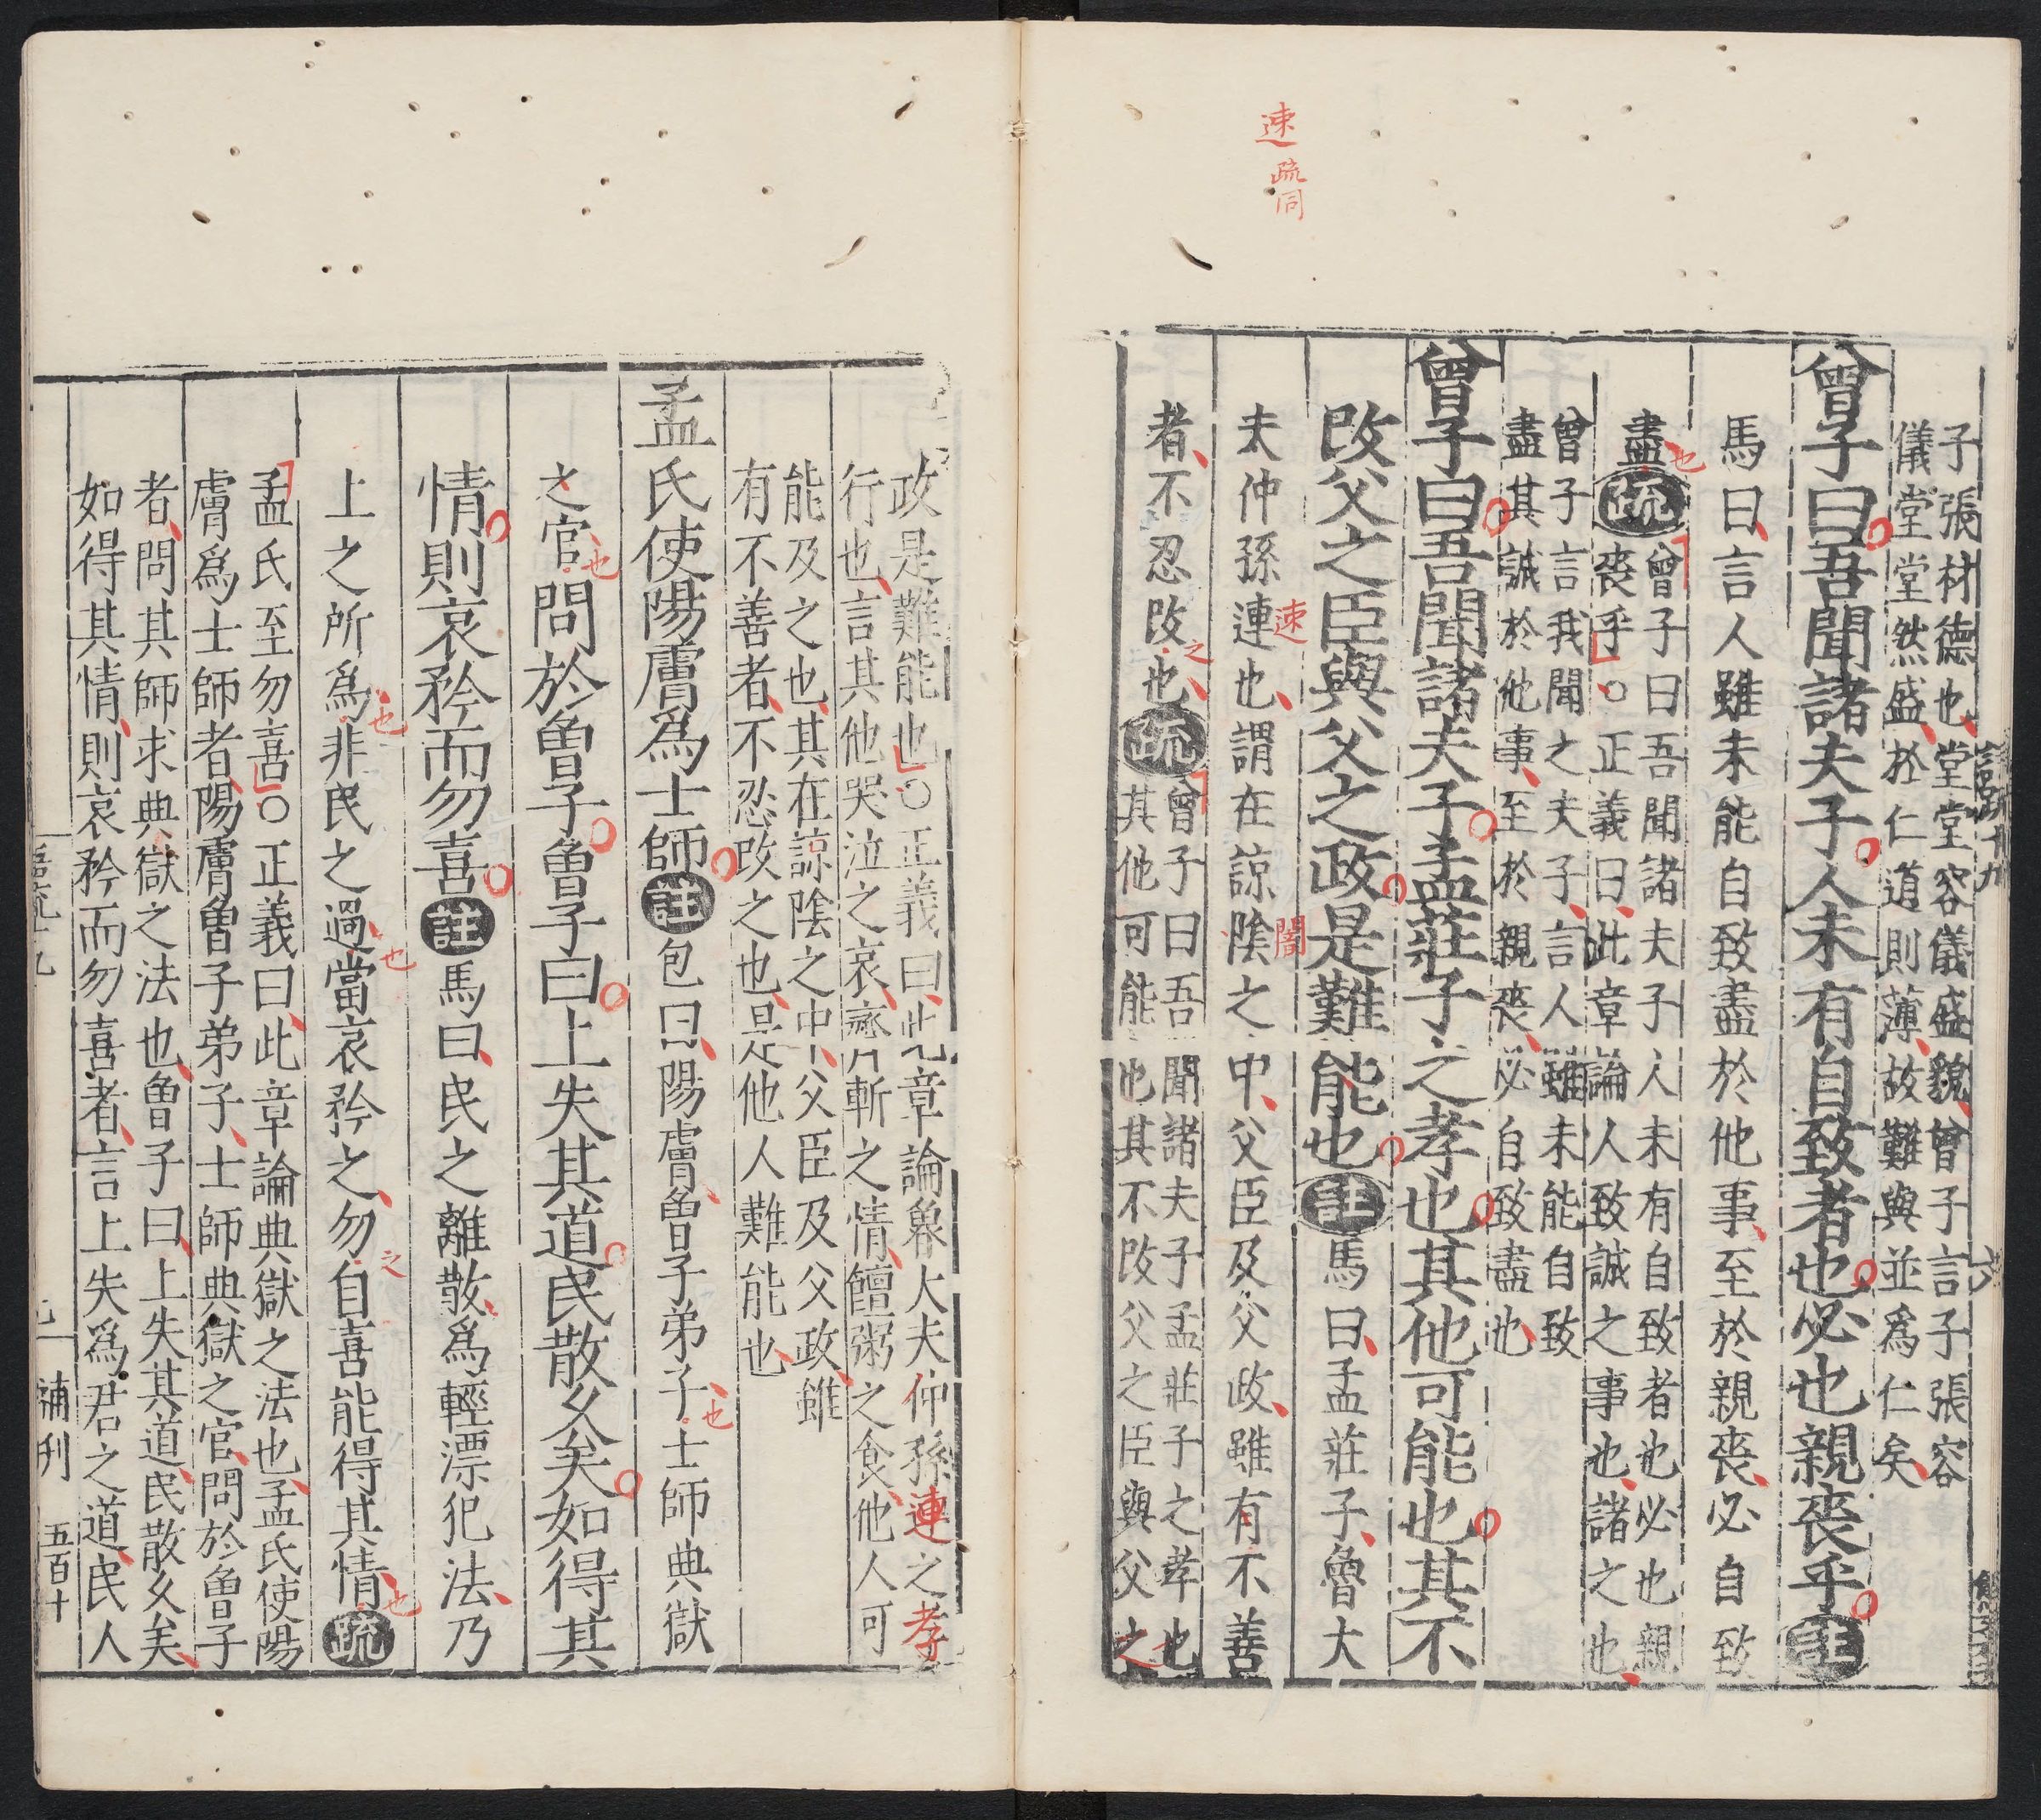 速
疏同
子張材德也堂堂容儀盛貌曾子言子張容
儀堂堂然盛於仁道則薄故難與並爲仁矣
曾子曰吾聞諸夫子人未有自致者也必也親喪乎註
馬曰言人雖未能自致盡於他事至於親喪必自致
盡也疏
曾子曰吾聞諸夫子人未有自致者也必也親
喪乎○正義曰此章論人致誠之事也諸之也
曾子言我聞之夫子言人雖未能自致
盡其誠於他事至於親喪必自致盡也
曾子曰吾聞諸夫子孟莊子之孝也其他可能也其不
改父之臣與父之政是難能也註馬曰孟莊子魯大
夫仲孫連也謂在諒陰之中父臣及父政雖有不善
速
闇
者不忍改之也疏
曾子曰吾聞諸夫子孟莊子之孝也
其他可能也其不改父之臣與父之
政是難能也○正義曰此章論魯大夫仲孫連之孝
行也言其他哭泣之哀齊斬之情饘粥之食他人可
能及之也其在諒陰之中父臣及父政雖
有不善者不忍改之也是他人難能也
孟氏使陽膚爲士師註包曰陽膚曾子弟子也士師典獄
之官也問於曾子曾子曰上失其道民散久矣如得其
情則哀矜而勿喜註馬曰民之離散爲輕漂犯法乃
上之所爲也非民之過也當哀矜之勿之自喜能得其情也疏
孟氏至勿喜○正義曰此章論典獄之法也孟氏使陽
膚爲士師者陽膚曾子弟子士師典獄之官問於曾子
者問其師求典獄之法也曾子曰上失其道民散久矣
如得其情則哀矜而勿喜者言上失爲君之道民人
補刊
五百十